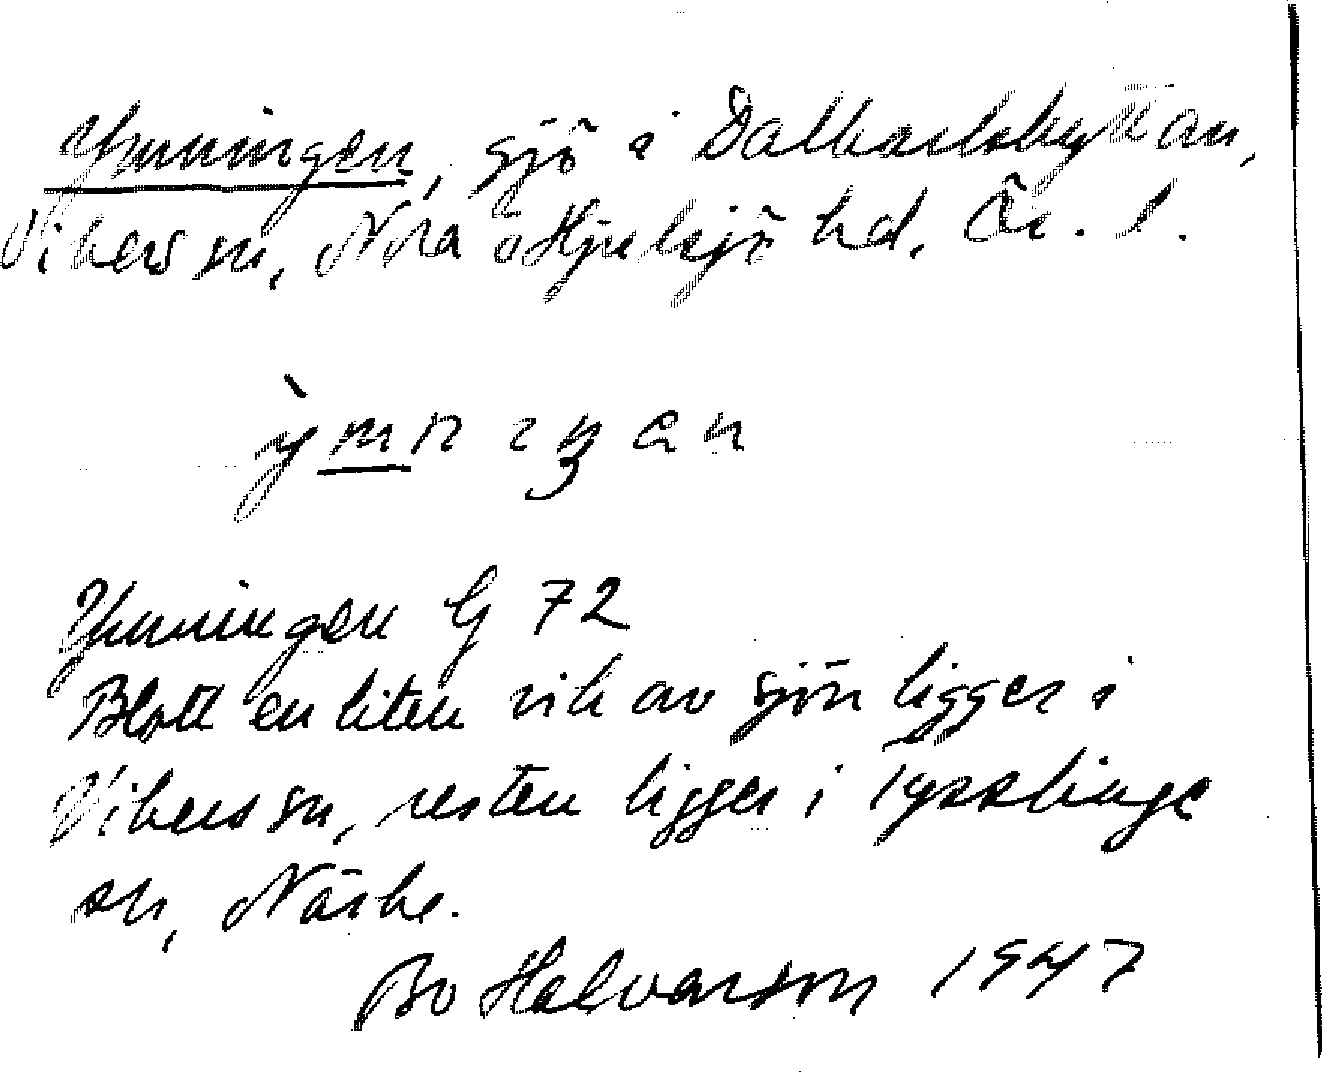 Ymningen, sjö i Dalkarlshyttan,
Vikers sn, Nora o Hjulsjö hd. Ör. l.
y̍mnɪŋen
Ymningen G 72
Blott en liten vik av sjön ligger i
Vikers sn, resten ligger i Tysslinge
sn, Närke.
Bo Halvarson 1947